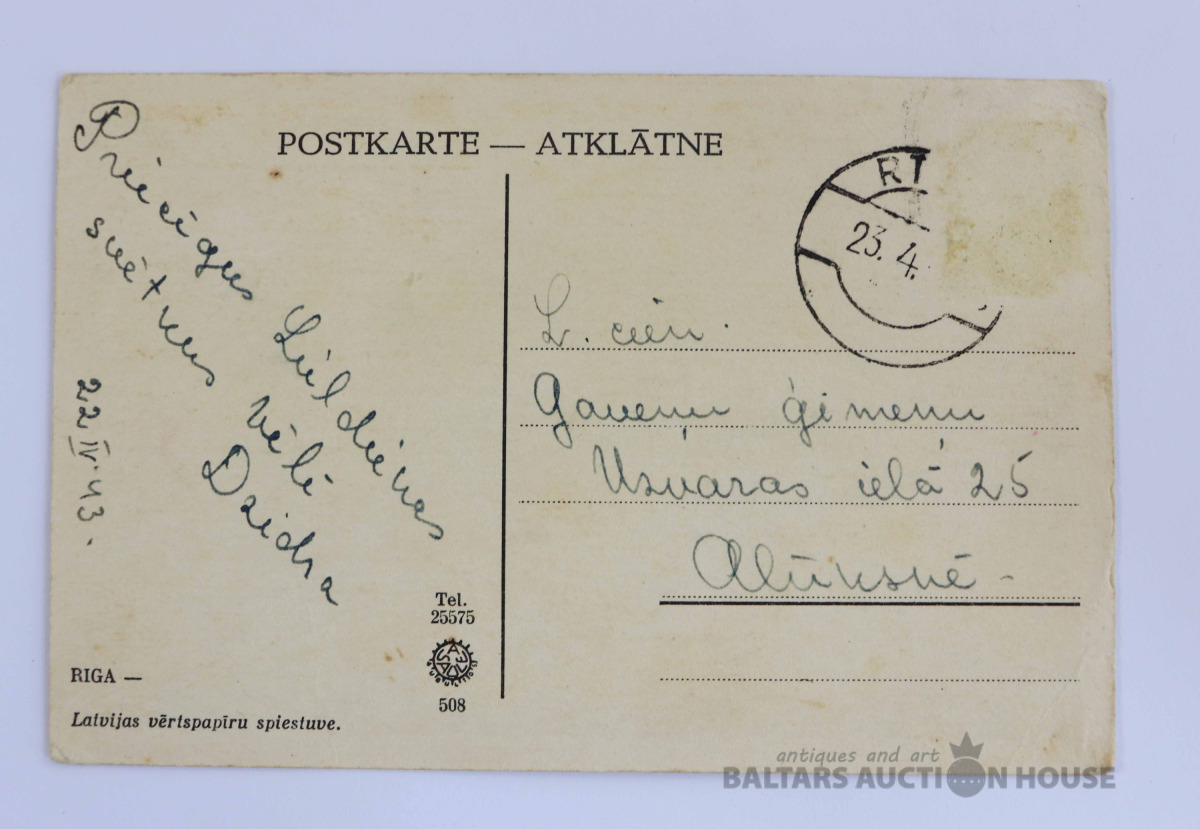 POSTKARTE — ATKLĀTNE
Priecīgus Lieldienas
svētkus vēlē
Dzidra
22 IV. 43.
RI
23. 4.
L. cien.
Gaueņu ģimenu
Uzvaras ielā 25
Alūksnē -
Tel.
25575
SAULE
508
RIGA —
Latvijas vērtspapīru spiestuve.
antiques and art
BALTARS AUCTION HOUSE